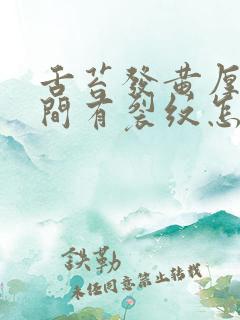 舌苔發黄厚
間有裂紋怎
鉄勒
未经同意禁止转载